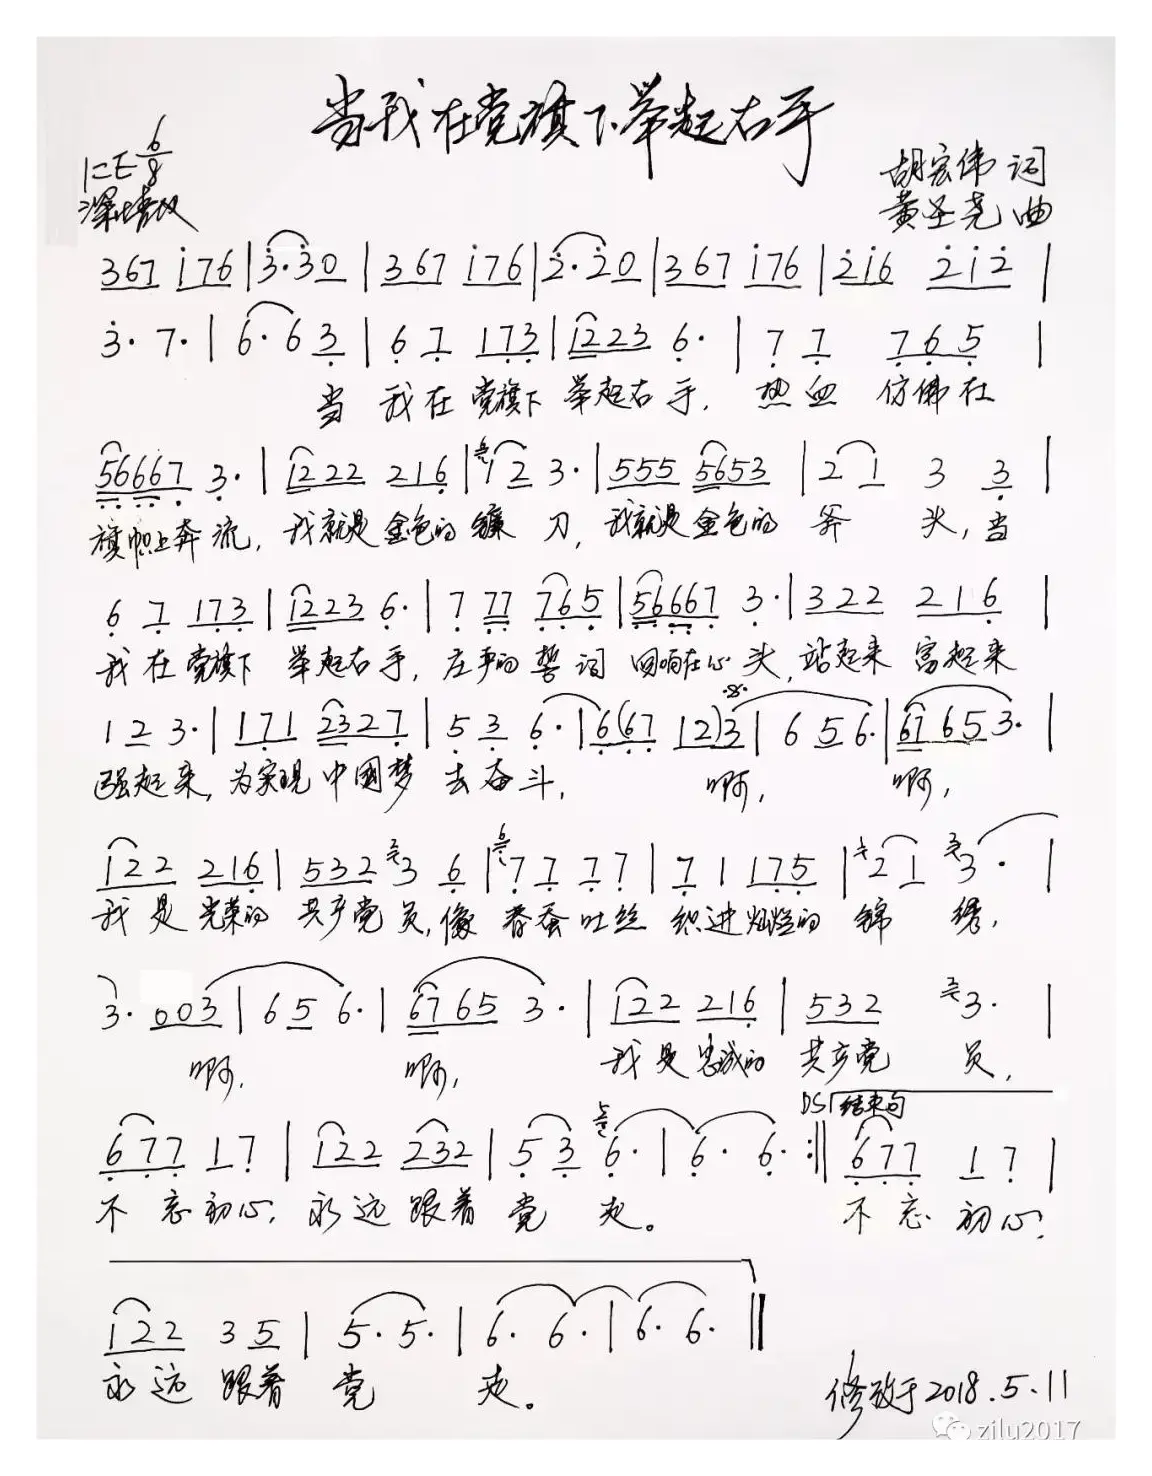 当我在党旗下举起右手
1=E 6/8
深情地
胡宏伟 词
黄圣尧 曲
367 176 | 3·30 | 367 176 | 2·20 | 367 176 | 216 212 |
3· 7· | 6·63 | 6 7 173 | 1223 6· | 7 7 765 |
当 我在 党旗下 举起右手, 热血 仿佛在
56667 3· | 1222 216 | 12 3· | 555 5653 | 2 1 3 3 |
旗帜上奔流, 我就是金色的镰 刀, 我就是金色的 斧 头, 当
6 7 173 | 1223 6· | 7 77 765 | 56667 3· | 322 216 |
我 在 党旗下 举起右手, 庄严的 誓 词 回响在心头, 站起来 富起来
1 2 3· | 171 2327 | 5 3 6· | 6(67 12)3 | 6 5 6· | 67 65 3· |
强起来, 为实现中国梦 去奋斗, 啊, 啊,
122 216 | 532 3 6 | 7 7 7 7 | 7 1 175 | 2 1 3· |
我 是 光荣的 共产党 员, 像 春蚕吐丝 织进灿烂的 锦 绣,
3· 003 | 6 5 6· | 67 65 3· | 122 216 | 532 3· |
啊, 啊, 我是忠诚的 共产党 员,
DS 结束句
677 17 | 122 232 | 5 3 6· | 6· 6· :‖ 677 1 7 |
不 忘初心, 永远跟着 党 走。 不忘 初心,
122 3 5 | 5· 5· | 6· 6· | 6· 6· ‖
永 远 跟着 党 走。
修改于2018.5.11
zilu2017